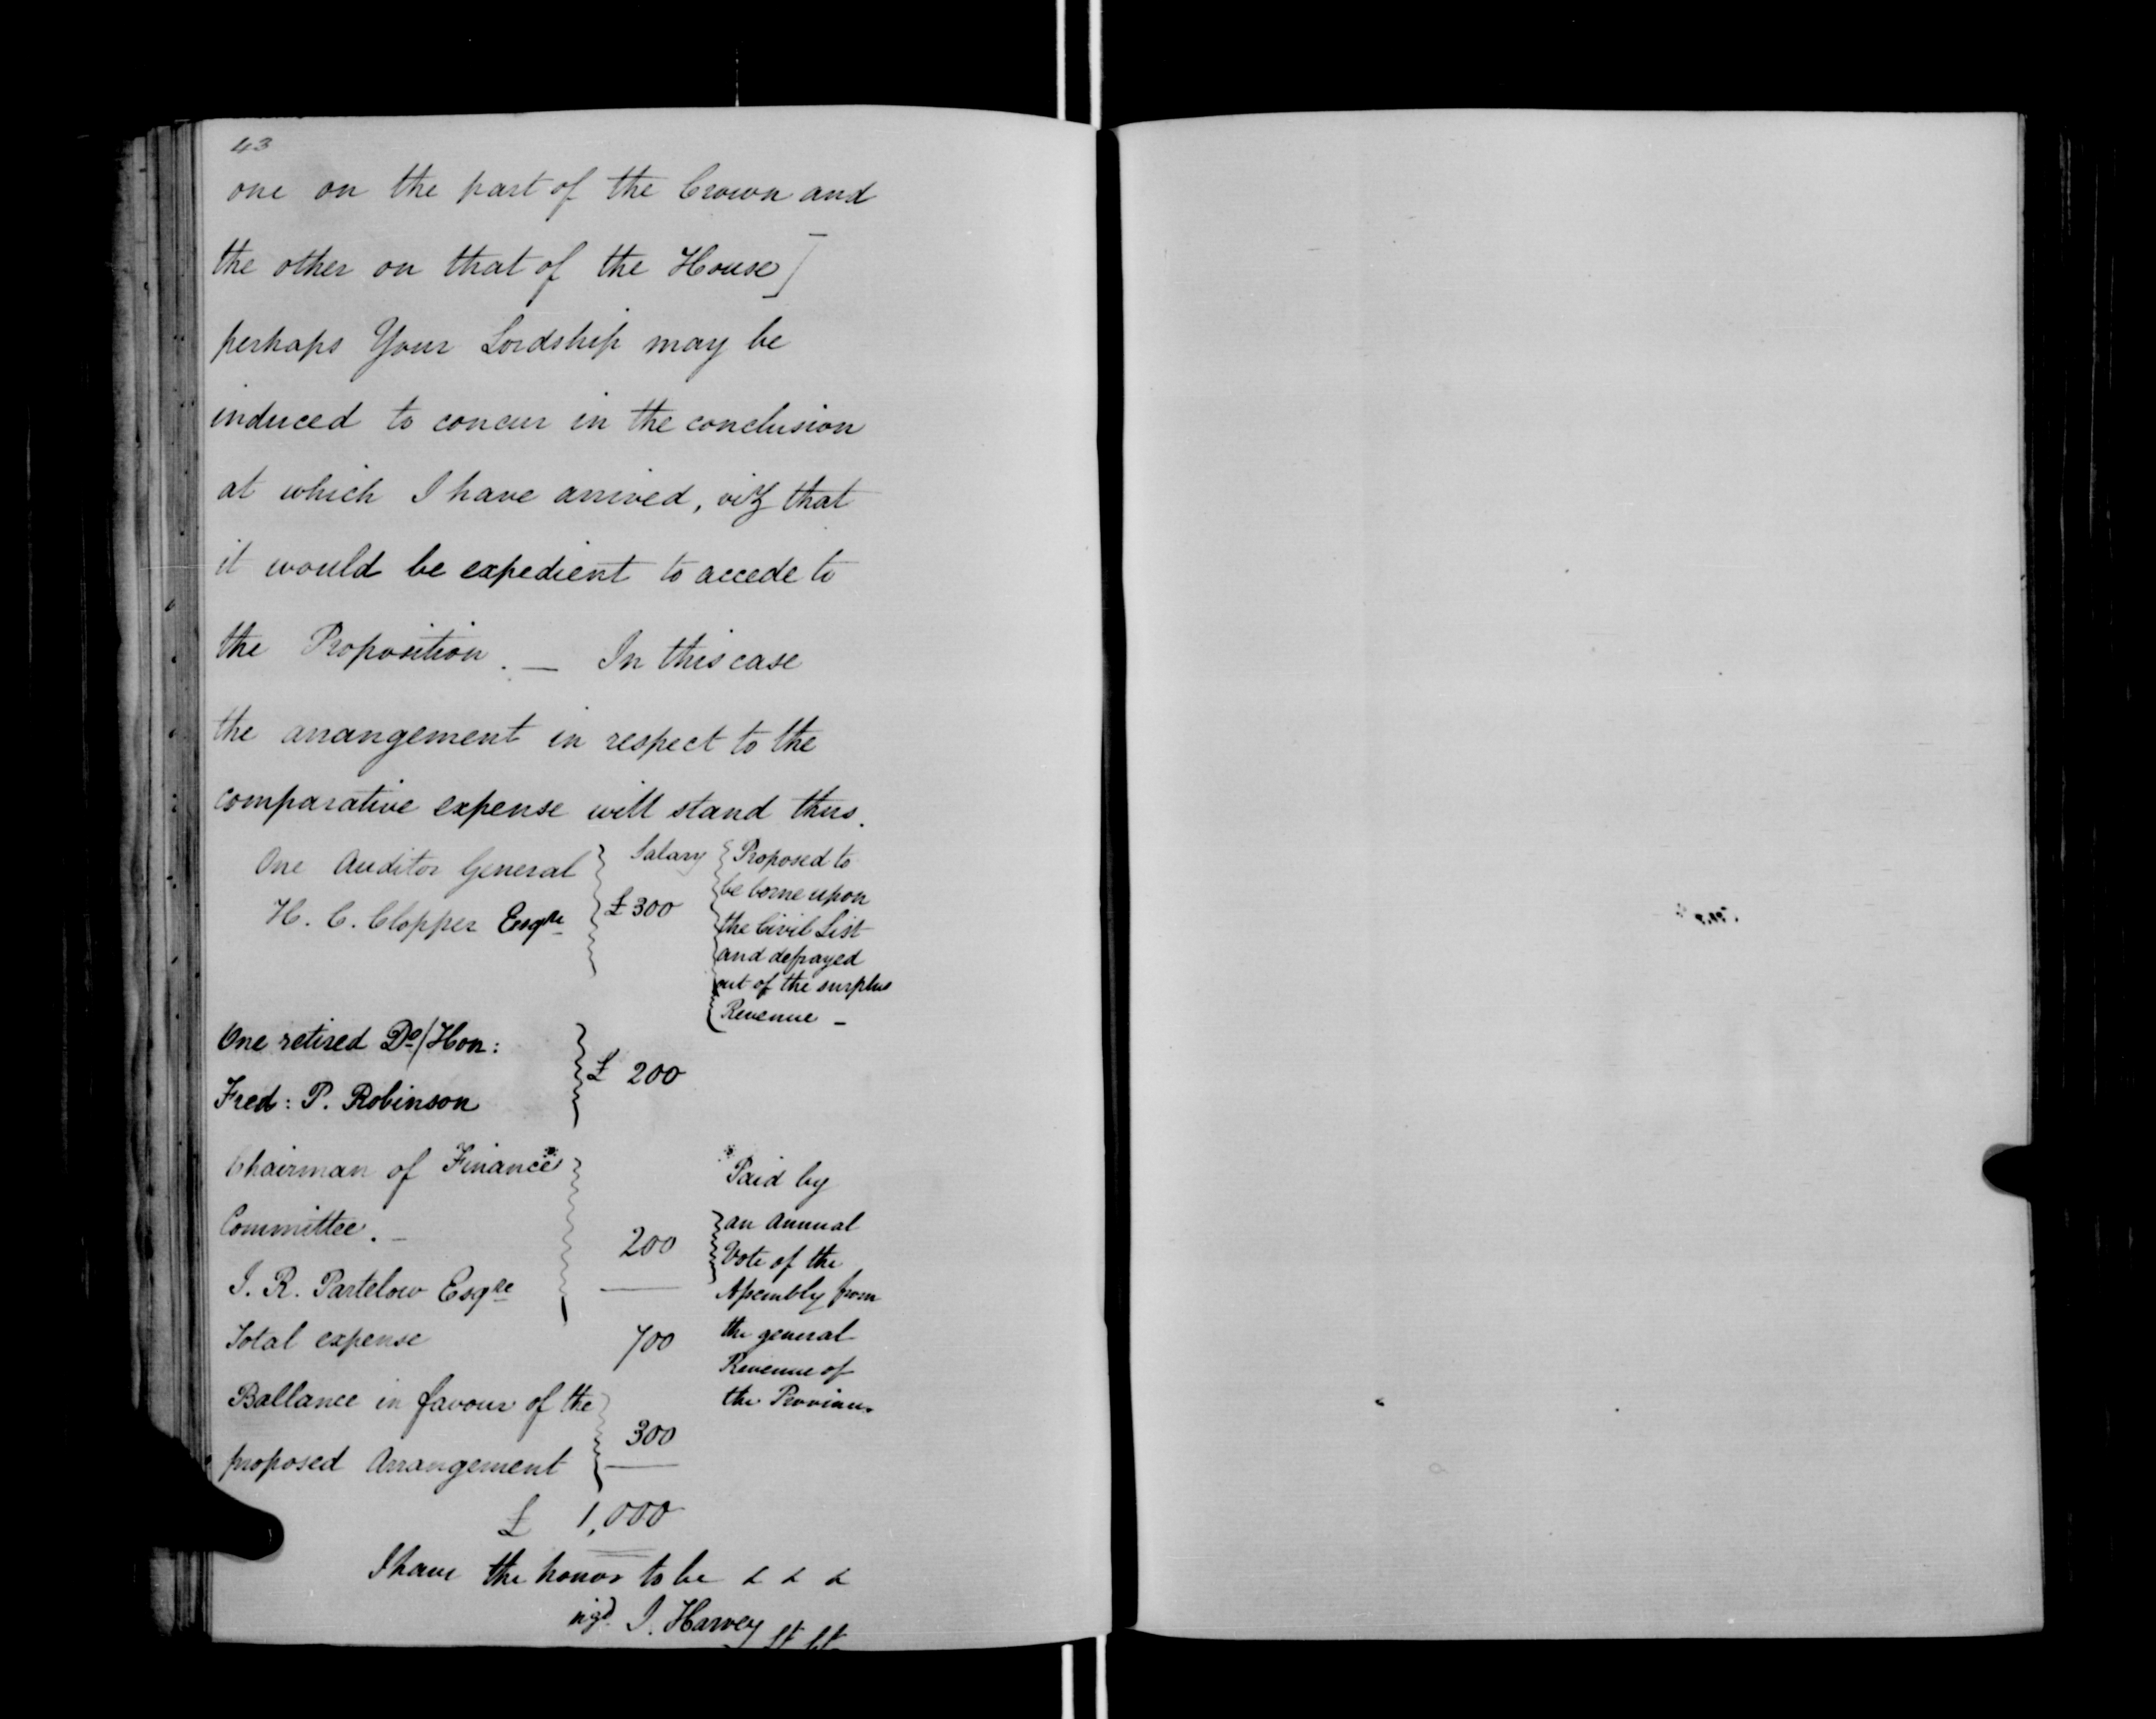 43
one on the part of the Crown and
the other on that of the House]
perhaps Your Lordship may be
induced to concur in the conclusion
at which I have arrived, viz that
it would be expedient to accede to
the Proposition. — In this case
the arrangement in respect to the
comparative expense will stand thus.
One Auditor General
H. C. Clopper Esqre
Salary
£300
Proposed to
be borne upon
the Civil List
and defrayed
out of the surplus
Revenue -
One retired Do/Hon:
Fred: P. Robinson
£ 200
Chairman of Finance
Committee. -
J. R. Partelow Esqre
200
Paid by
an annual
Vote of the
Assembly from
the general
Revenue of
the Province
Total expense
700
Ballance in favour of the
proposed Arrangement
300
£ 1,000
I have the honor to be & & &
sigd. J. Harvey